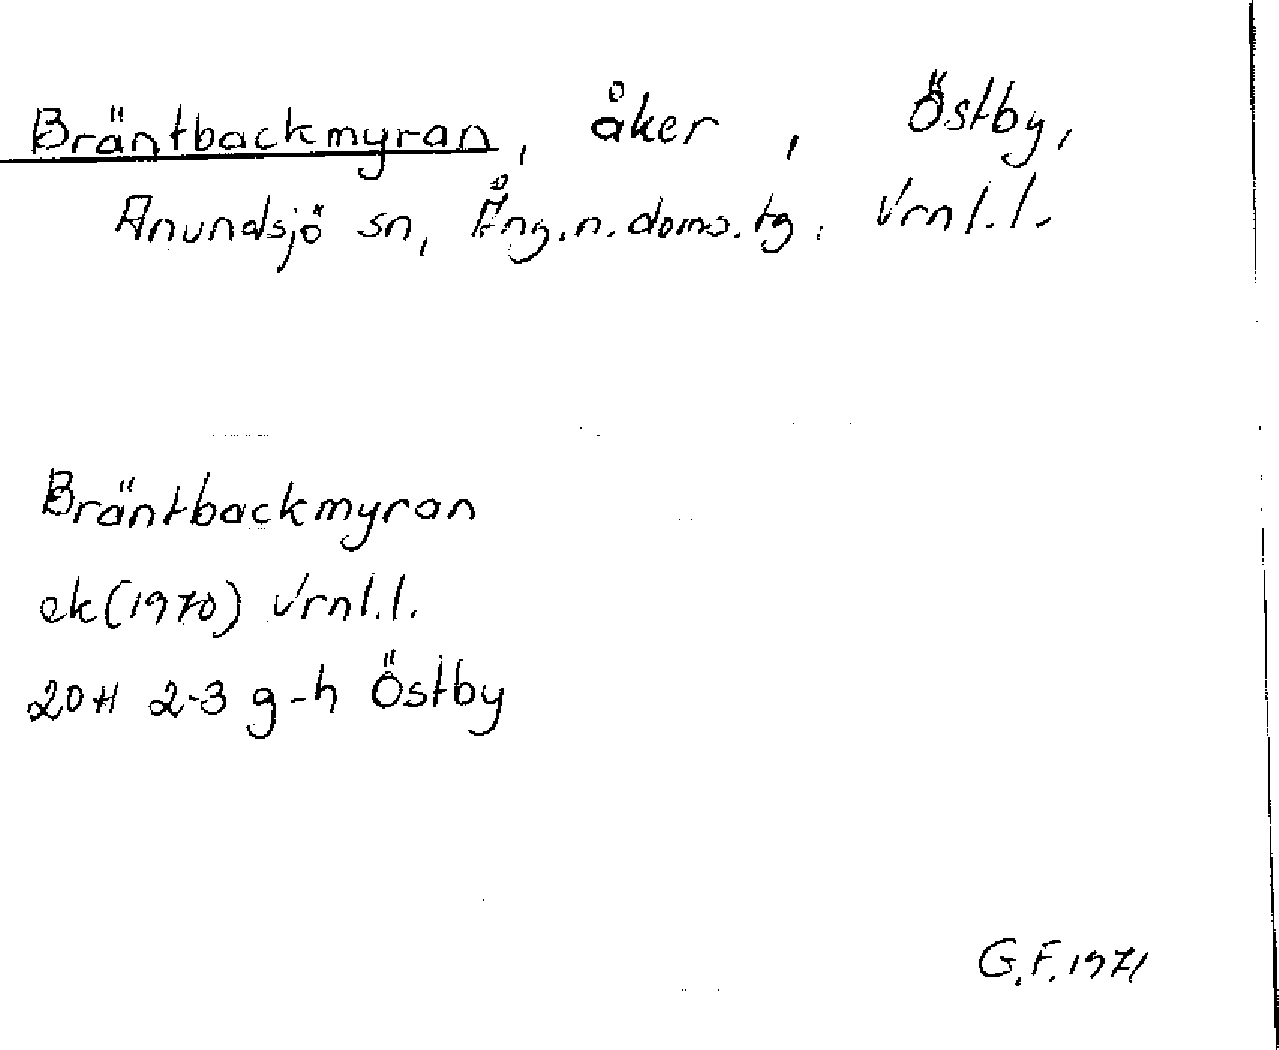 Bräntbackmyran, åker, Östby,
Anundsjö sn, Ång.n.doms.tg. Vrnl.l.
Bräntbackmyran
ek(1970) Vrnl.l.
20H 2-3 g-h Östby
G.F.1971